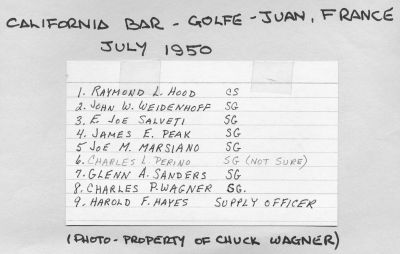 CALIFORNIA BAR - GOLFE-JUAN, FRANCE
JULY 1950
1. RAYMOND L. HOOD CS
2. JOHN W. WEIDENHOFF SG
3. E JOE SALVETI SG
4. JAMES E. PEAK SG
5 JOE M. MARSIANO SG
6. CHARLES L. PERINO SG (NOT SURE)
7. GLENN A. SANDERS SG
8. CHARLES P. WAGNER SG.
9. HAROLD F. HAYES SUPPLY OFFICER
(PHOTO - PROPERTY OF CHUCK WAGNER)